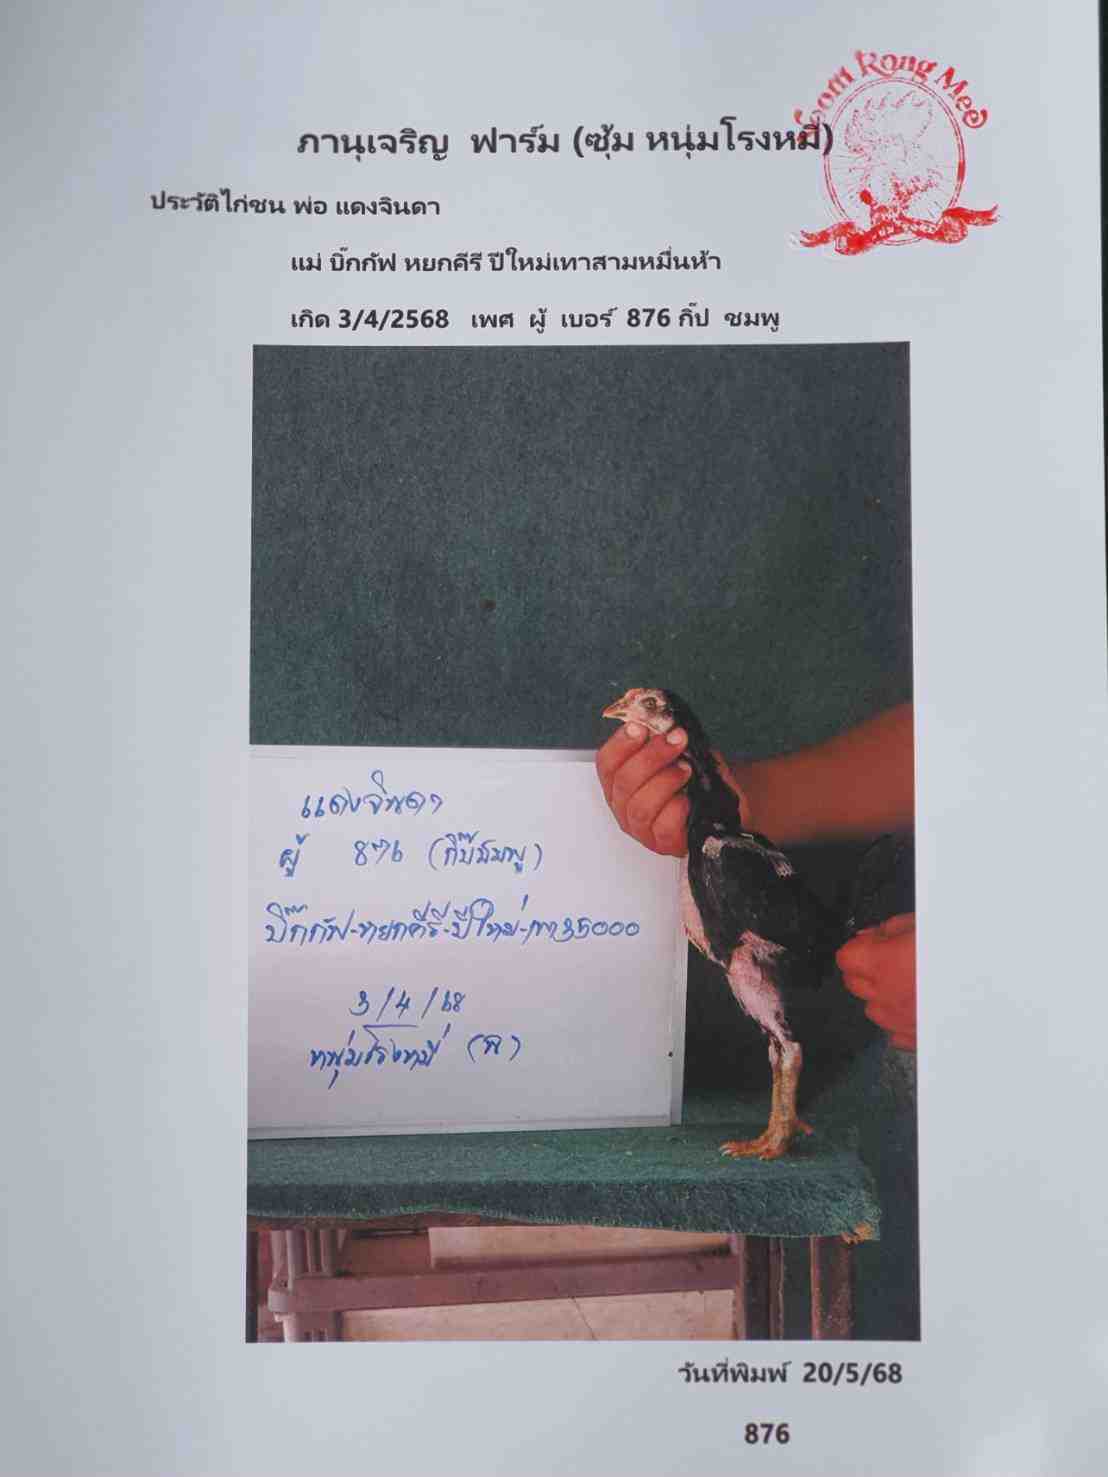 Room Rong Mee
ภานุเจริญ ฟาร์ม (ซุ้ม หนุ่มโรงหมี่)
ประวัติไก่ชน พ่อ แดงจินดา
แม่ บิ๊กกัฟ หยกคีรี ปีใหม่เทาสามหมื่นห้า
เกิด 3/4/2568 เพศ ผู้ เบอร์ 876 กิ๊ป ชมพู
แดงจินดา
ผู้ 876 (กิ๊ปชมพู)
บิ๊กกัฟ-หยกคีรี-ปีใหม่-เทา35000
3/4/68
หนุ่มโรงหมี่
วันที่พิมพ์ 20/5/68
876